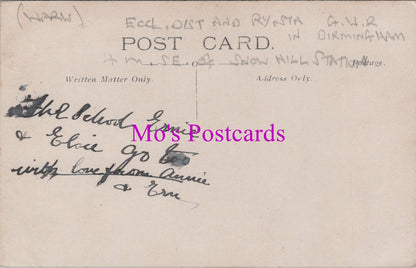 (WARW)
ECCL. DIST AND RY. STA G.W.R
IN BIRMINGHAM
POST CARD.
1 m. SE. of SNOW HILL STATION
Written Matter Only.
Address Only.
the School Ernie
& Elsie go to
Mo's Postcards
with love from Annie
& Ern